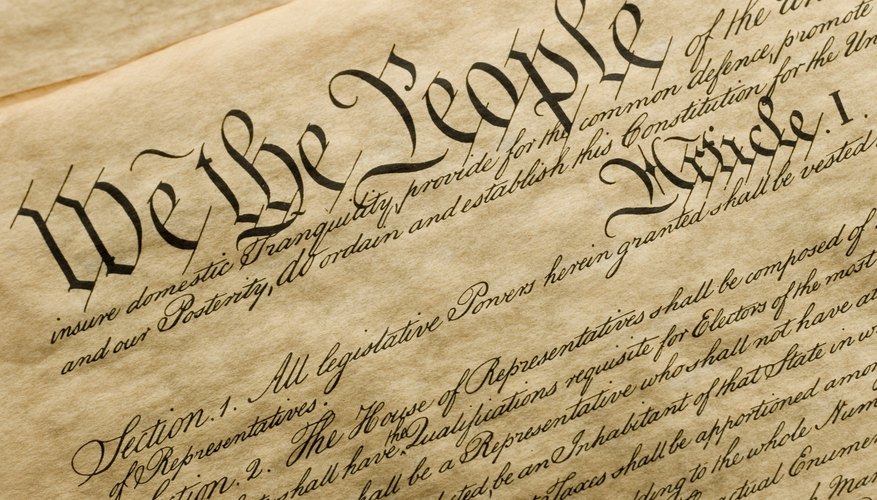 We the People of the Un
insure domestic Tranquility, provide for the common defence, promote
and our Posterity, do ordain and establish this Constitution for the Un
Article. I.
Section. 1. All legislative Powers herein granted shall be vested
of Representatives.
Section. 2. The House of Representatives shall be composed of
shall have the Qualifications requisite for Electors of the most
shall be a Representative who shall not have at
be an Inhabitant of that State in w
Taxes shall be apportioned amon
ding to the whole Num
ctual Enumer